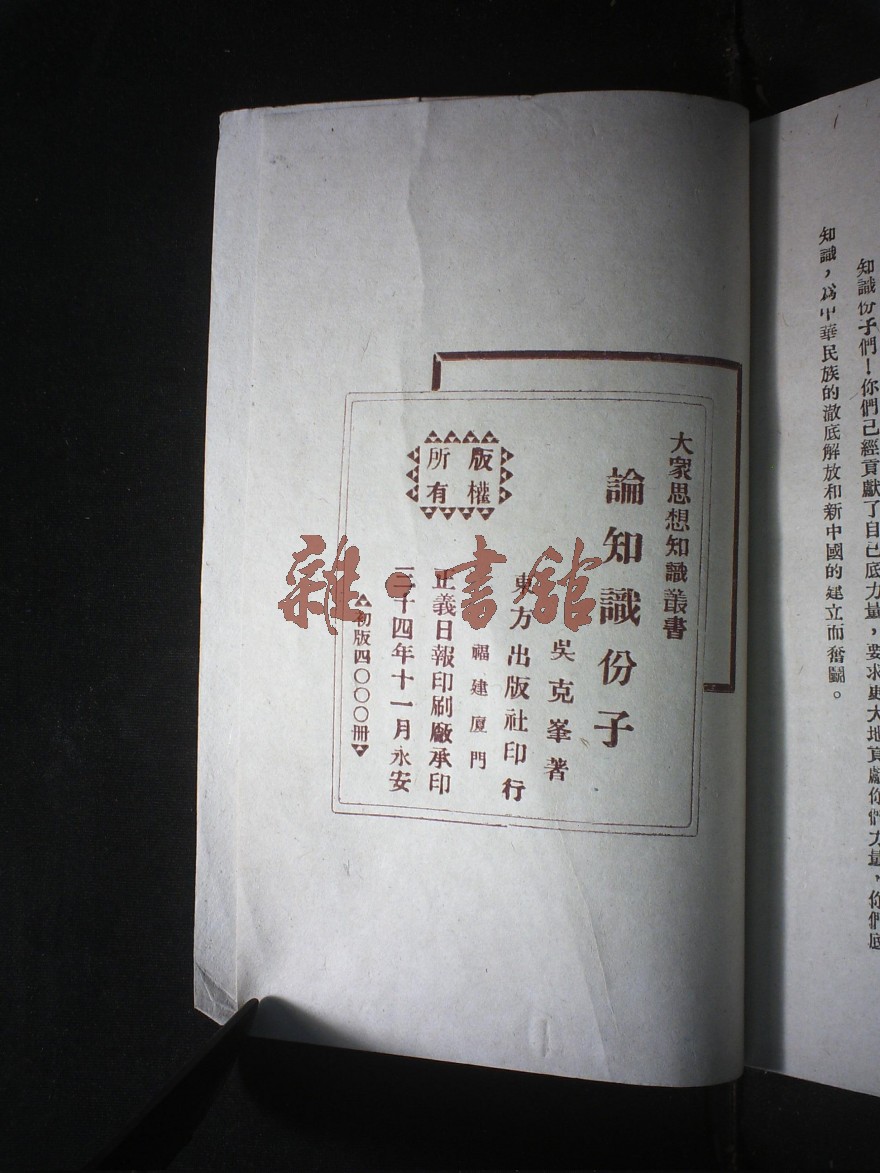 知識份子們！你們已經貢獻了自己底力量，要求更大地貢獻你們力量、你們底
知識，爲中華民族的澈底解放和新中國的建立而奮鬭。
大衆思想知識叢書
論知識份子
吳克峯著
東方出版社印行
福建厦門
正義日報印刷廠承印
三十四年十一月永安
初版四〇〇〇册
版權
所有
雜·書館